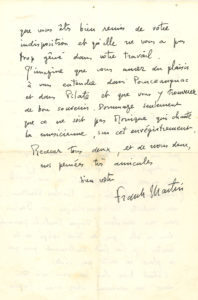 que vous êtes bien remis de votre
indisposition et qu'elle ne vous a pas
trop gêné dans votre travail.
J'imagine que vous aurez du plaisir
à vous entendre dans Pourceaugnac
et dans Pilate et que vous y trouverez
de bons souvenirs. Dommage seulement
que ce ne soit pas Monique qui chante
la musicienne, sur cet enregistrement.
Recevez tous deux, et de nous deux,
nos pensées très amicales
bien vôtre
Frank Martin